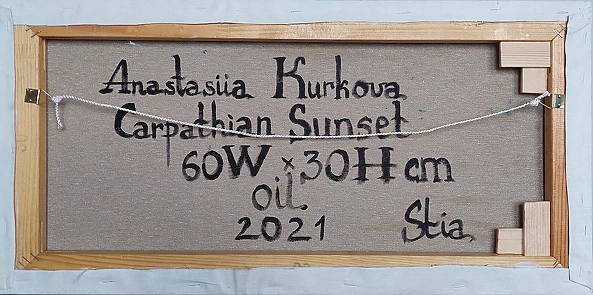 Anastasiia Kurkova
Carpathian Sunset
60W x 30H cm
oil.
2021 Stia.